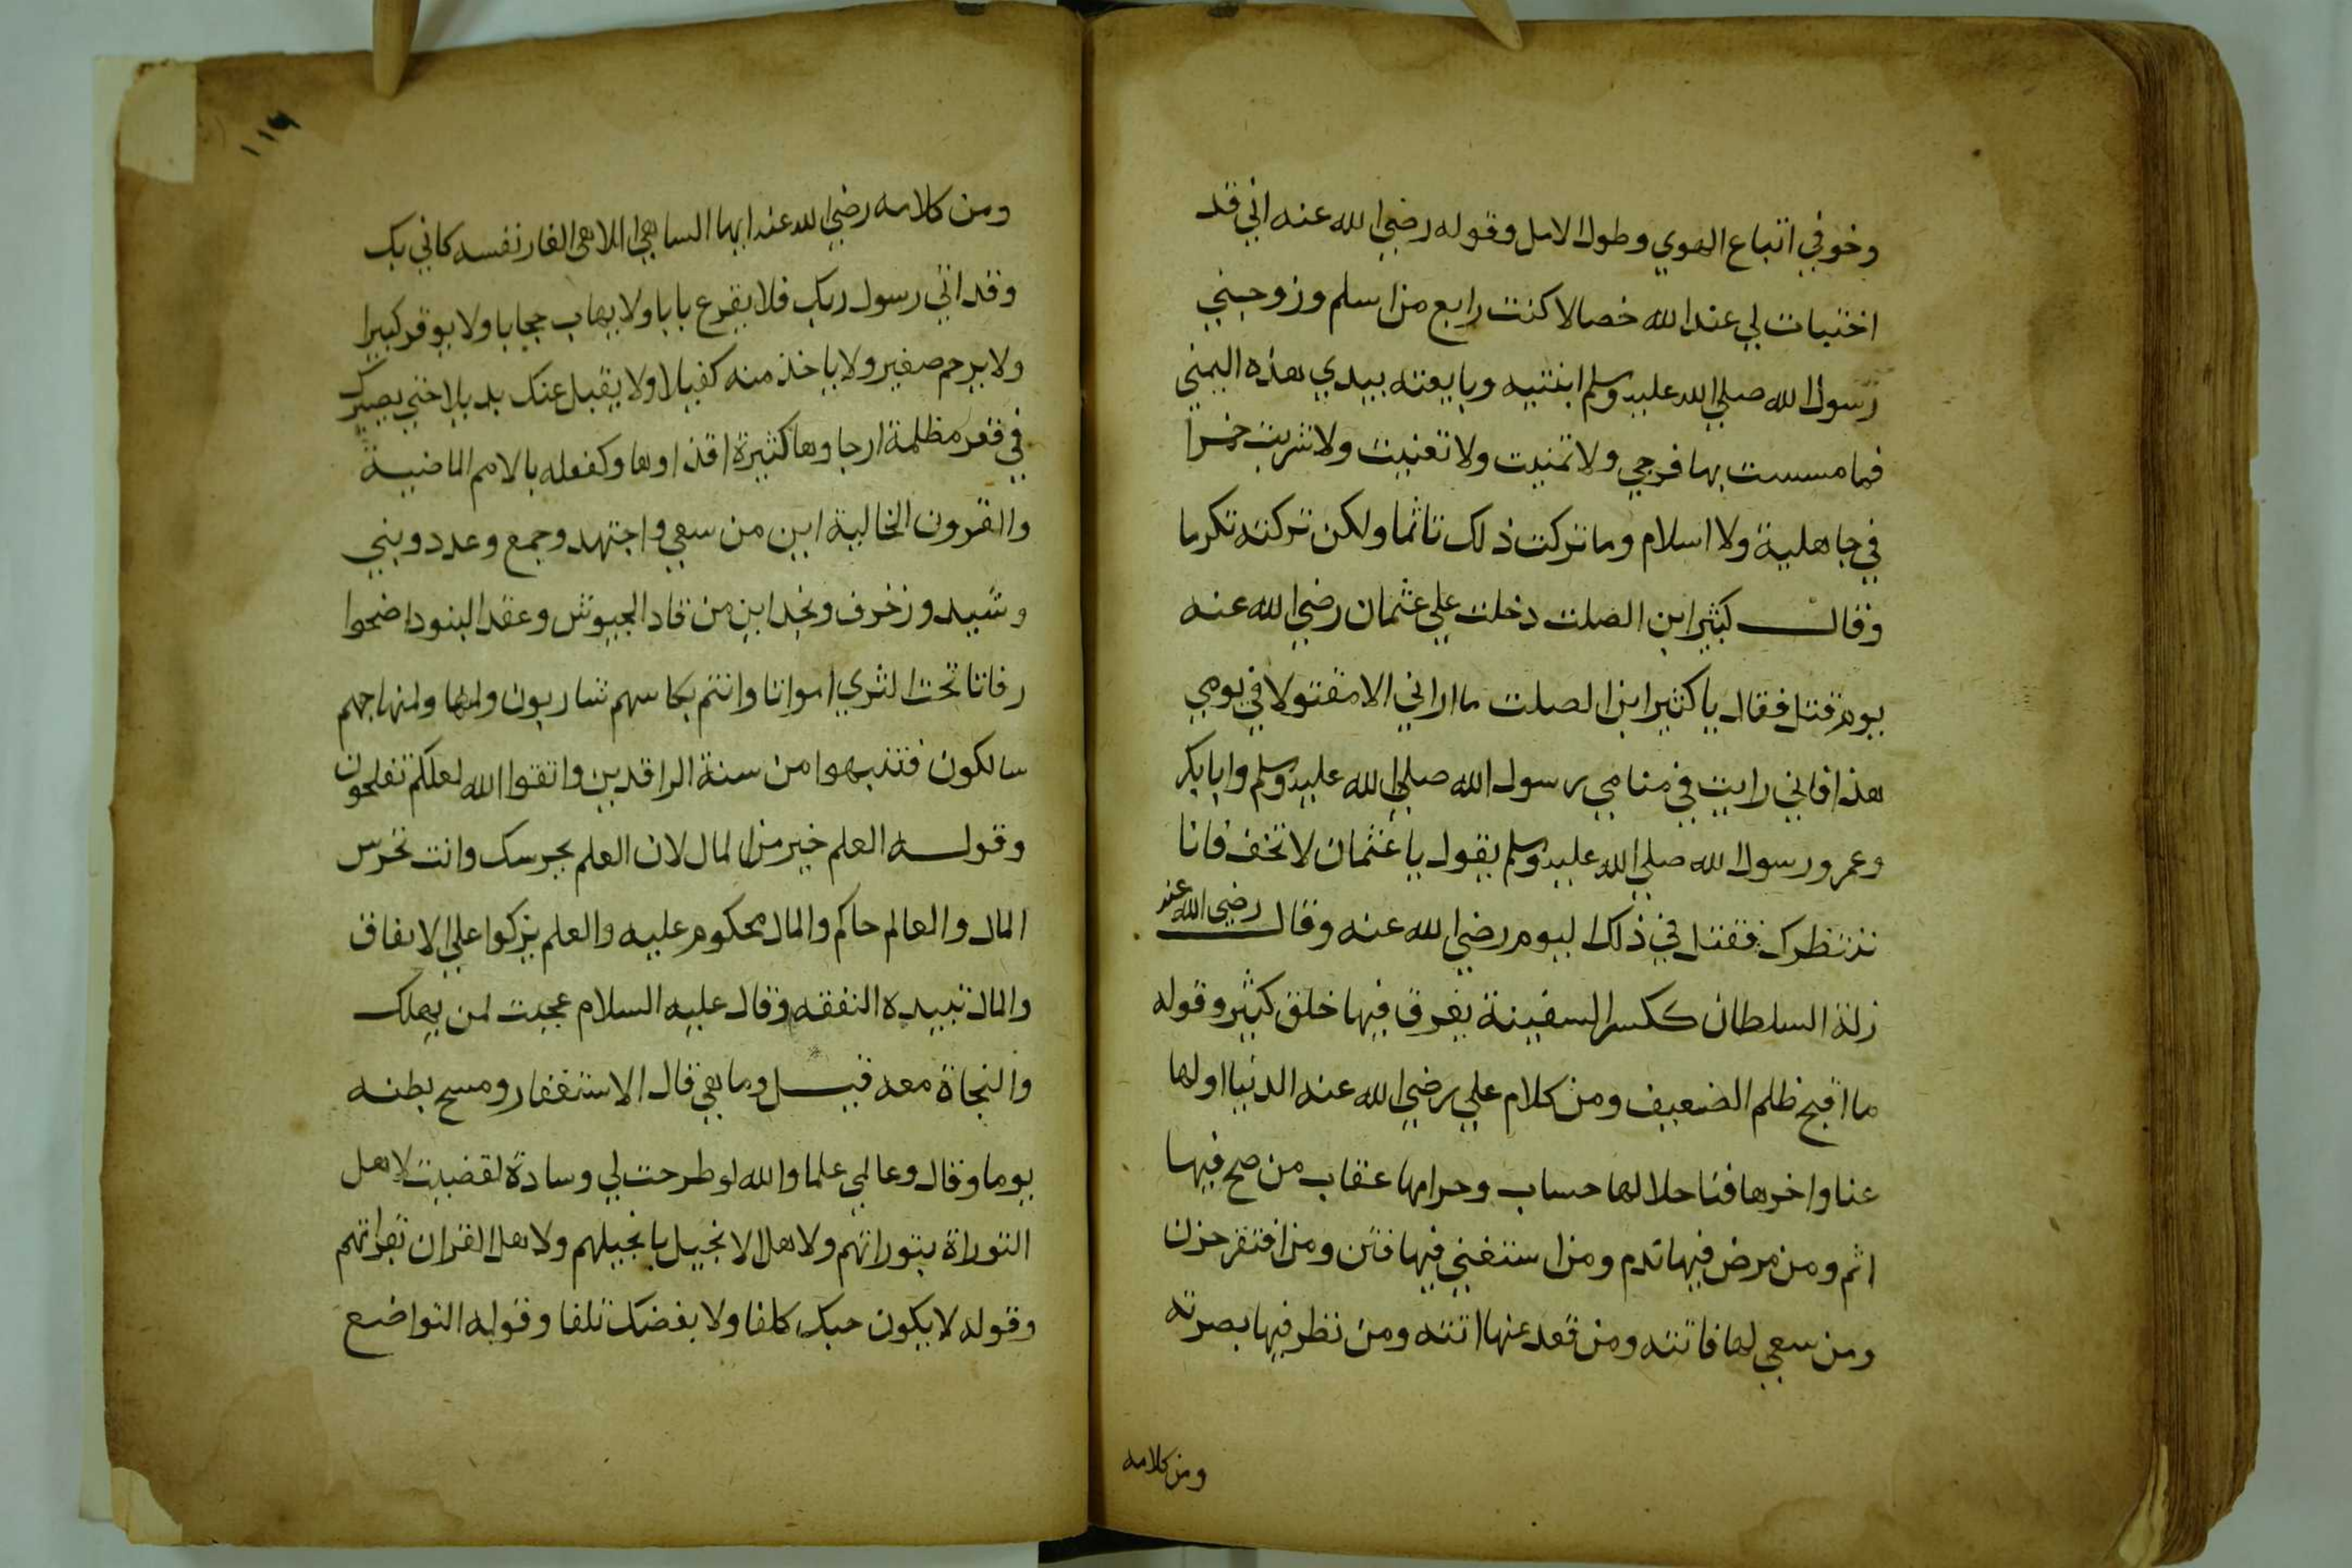 وخوفي اتباع الهوي وطول الامل وقوله رضي الله عنه اني قد
اختبات لي عند الله خصالا كنت رابع من اسلم وزوجني
رسول الله صلي الله عليه وسلم ابنتيه وبايعته بيدي هذه اليمني
فما مسست بها فرجي ولا تمنيت ولا تغنيت ولا شربت خمرا
في جاهلية ولا اسلام وما تركت ذلك تاثما ولكن تركته تكرما
وقال كثير ابن الصلت دخلت علي عثمان رضي الله عنه
يوم قتل فقال يا كثير ابن الصلت ما اراني الا مقتولا في يومي
هذا فاني رايت في منامي رسول الله صلي الله عليه وسلم وابا بكر
وعمر ورسول الله صلي الله عليه وسلم يقول يا عثمان لا تخف فانا
ننتظرك فقتل في ذلك ليوم رضي الله عنه وقال رضي الله عنه
زلة السلطان ككسر السفينة يغرق فيها خلق كثير وقوله
ما اقبح ظلم الضعيف ومن كلام علي رضي الله عنه الدنيا اولها
عنا واخرها فنا حلالها حساب وحرامها عقاب من صح فيها
اثم ومن مرض فيها ندم ومن استغني فيها فتن ومن افتقر حزن
ومن سعي لها فاتته ومن قعد عنها اتته ومن نظر فيها بصرته
ومن كلامه
١١٦
ومن كلامه رضي الله عنه ايها الساهي اللاهي الغار نفسه كاني بك
وقد اتي رسول ربك فلا يقرع بابا ولا يهاب حجابا ولا يوقر كبيرا
ولا يرحم صغير ولا ياخذ منه كفيلا ولا يقبل عنك بديلا حتي يصيرك
في قعر مظلمة ارجاوها كثيرة اقذاوها وكفعله بالامم الماضية
والقرون الخالية اين من سعي واجتهد وجمع وعدد وبني
وشيد وزخرف ونجد اين من قاد الجيوش وعقد البنود اضحوا
رفاتا تحت الثري امواتا وانتم بكاسهم شاربون ولمنهاجهم
سالكون فتنبهوا من سنة الراقدين واتقوا الله لعلكم تفلحون
وقوله العلم خير من المال لان العلم يحرسك وانت تحرس
المال والعالم حاكم والمال محكوم عليه والعلم يزكوا علي الانفاق
والمال تبيده النفقه وقال عليه السلام عجبت لمن يهلك
والنجاة معه قيل وما هي قال الاستغفار ومسح بطنه
يوما وقال وعالمي علما والله لو طرحت لي وسادة لقضيت لاهل
التوراة بتوراتهم ولاهل الانجيل بانجيلهم ولاهل القران بقراتهم
وقوله لا يكون حبك كلفا ولا بغضك تلفا وقوله التواضع